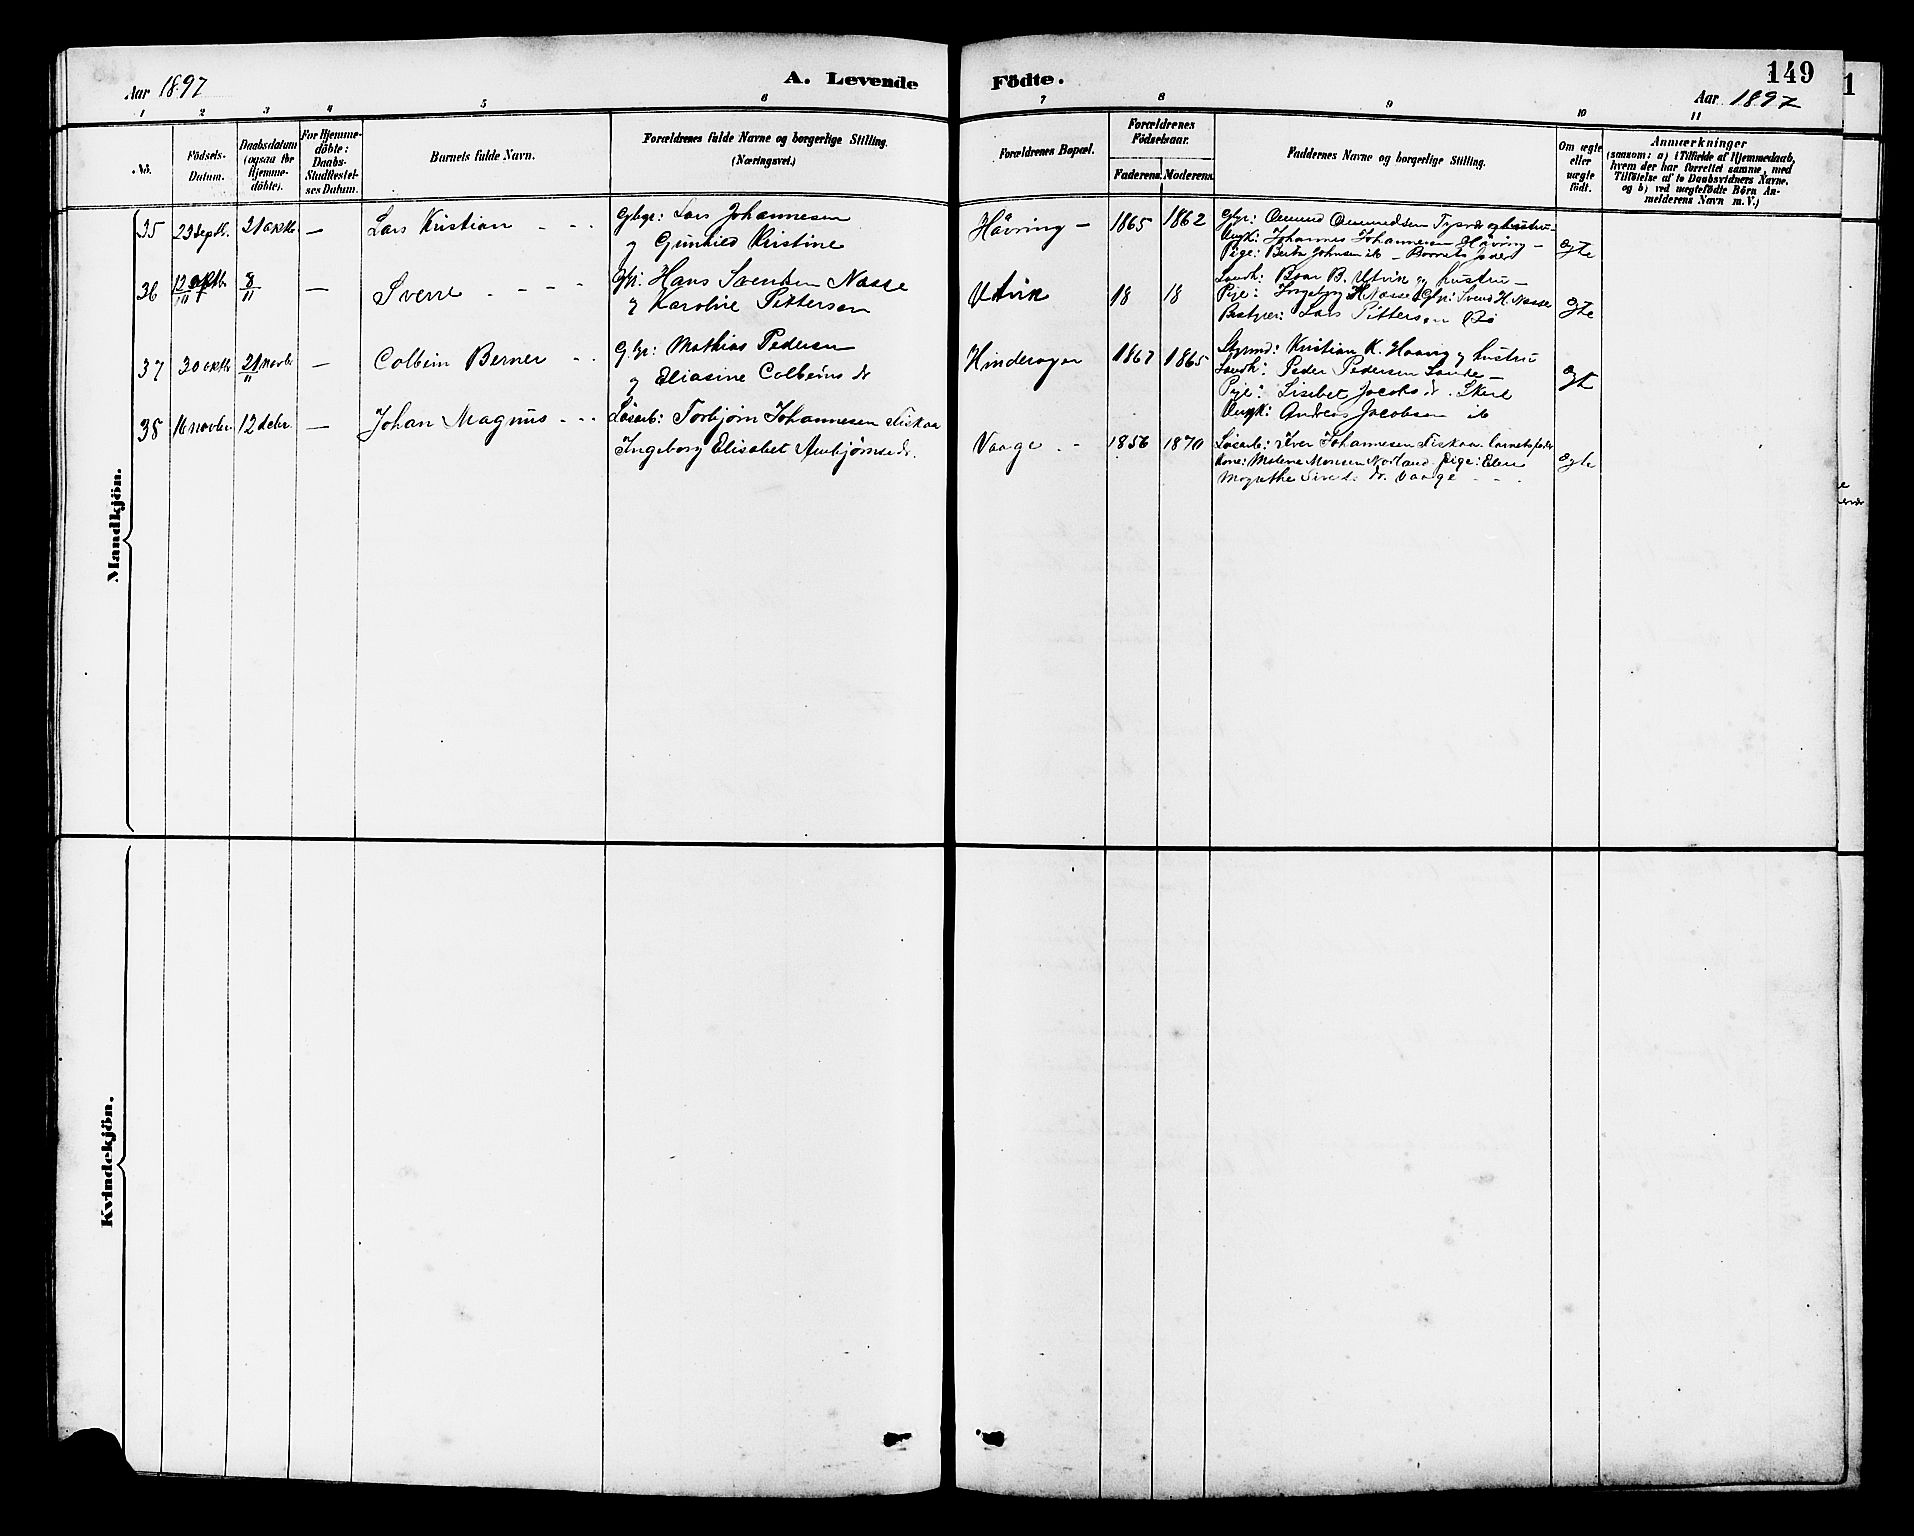 Aar 1897
A. Levende
Födte.
149
Aar 1897
1 2 3 4 5 6 7 8 9 10 11
No.
Födsels-Datum.
Daabsdatum (ogsaa for Hjemme-döbte).
For Hjemme-döbte: Daabs-Stadfæstel-ses Datum.
Barnets fulde Navn.
Forældrenes fulde Navne og borgerlige Stilling.
(Næringsvei.)
Forældrenes Bopæl.
Forældrenes Födselsaar.
Faderens. Moderens.
Faddernes Navne og borgerlige Stilling.
Om ægte eller uægte födt.
Anmærkninger
(saasom: a) i Tilfælde af Hjemmedaab,
hvem der har forrettet samme, med
Tilföielse af to Daabsvidners Navne,
og b) ved uægtefödte Börn An-
melderens Navn m. V.)
Mandkjön.
35 23 septb. 21 oktb. — Lars Kristian - - - Gbgr: Lars Johannesen
og Gunhild Kristine
Håvring — 1865 1862
Johannes Johannesen Håvring —
Pige: Berta Johnsen ib — Barnets fader
ægte
36 12/10 oktb 8/11 — Sverre - - - - Hans Svendsen Nasse
og Karoline Pettersen
Utvik 18 18
B. Utvik og hustru —
Pige: Ingeborg H Nasse Svend H. Nasse
Bestyrer: Lars Pettersen Bö
ægte
37 30 oktb 21 novbr/11 — Colbein Berner - - Gbr: Mathias Pedersen
og Eliasine Colbeins dr
Hinderagen 1867 1865
Styrmd: Kristian K. Haavig og hustru
Peder Pedersen Lande —
Pige: Lisebet Jacobs dr. Skeie
Ungk: Andreas Jacobsen ib
ægte
38 16 novbr 12 debr. — Johan Magnus - - - Løsarb: Torbjørn Johannesen Fiskaa
Ingeborg Elisabet Arnbjørnsdr.
Vaage - 1856 1870
Løsarb: Iver Johannesen Fiskaa. barnets fader
Kone: Malene Monsen Norland. Pige: Elen
Magrethe Sivertsdr. Vaage - - -
ægte
Kvindekjön.